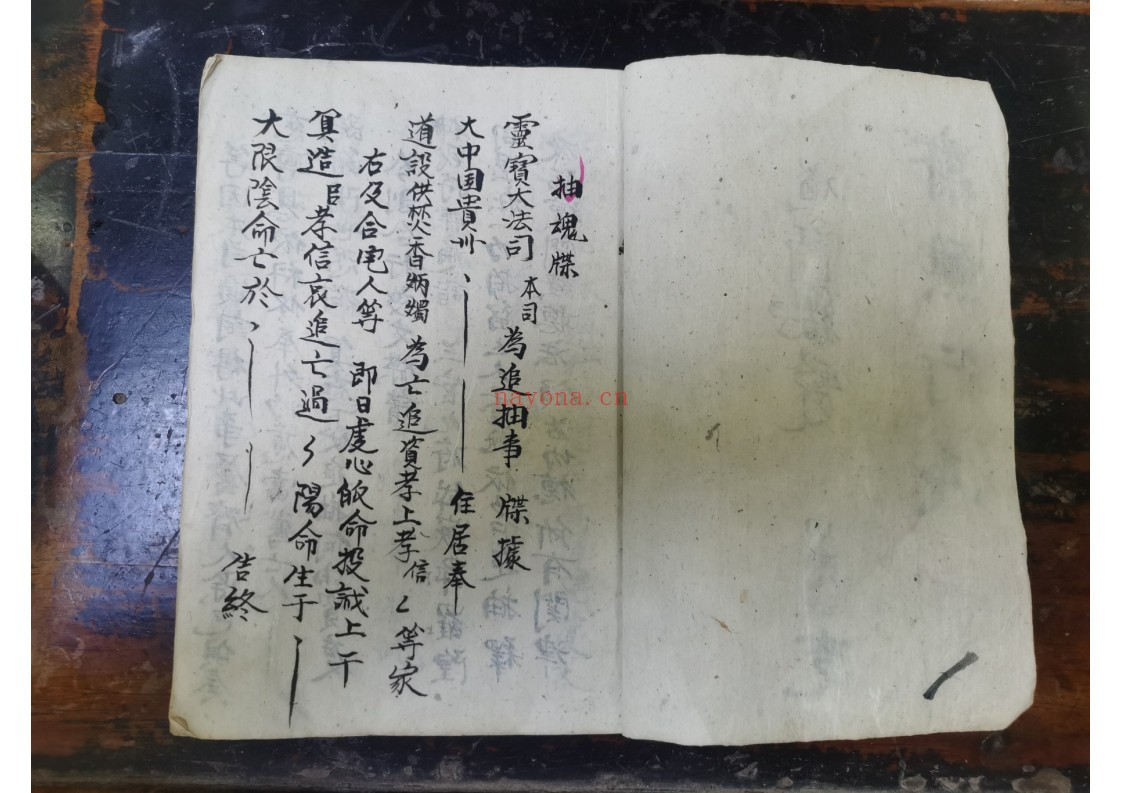 抽魂牒
靈寶大法司 本司 為追抽事 牒據
大中国貴州 住居奉
道設供焚香炳燭為亡追資孝上孝信 等家
右及合宅人等 即日虔心皈命投誠上干
冥造 孝信哀追亡過 陽命生于
大限陰命亡於 告終
nayona.cn